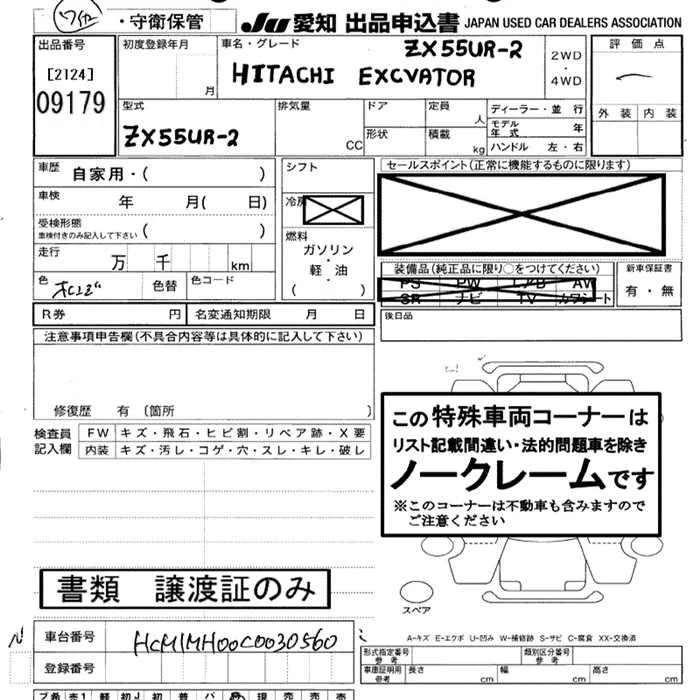 ・守衛保管
JU 愛知 出品申込書 JAPAN USED CAR DEALERS ASSOCIATION
出品番号
[2124]
09179
初度登録年月
月
車名・グレード
ZX55UR-2
HITACHI EXCVATOR
2WD
・
4WD
評価点
外装 内装
型式
ZX55UR-2
排気量
CC
ドア
形状
定員
人
積載
kg
ディーラー・並行
モデル年式 年
ハンドル 左・右
車歴
自家用・( )
車検
年 月( 日)
受検形態
車検付きのみ記入して下さい ( )
走行
万 千 km
色
色替
色コード
シフト
冷房
燃料
ガソリン
・
軽・油
( )
セールスポイント(正常に機能するものに限ります)
装備品(純正品に限り○をつけてください)
PS PW エアB AW
SR ナビ TV カワシート
新車保証書
有・無
後日品
R券 円
名変通知期限 月 日
注意事項申告欄(不具合内容等は具体的に記入して下さい)
修復歴 有 〔箇所 〕
検査員
記入欄
FW キズ・飛石・ヒビ割・リペア跡・X要
内装 キズ・汚し・コゲ・穴・スレ・キレ・破し
この特殊車両コーナーは
リスト記載間違い・法的問題車を除き
ノークレームです
※このコーナーは不動車も含みますので
ご注意ください
書類 譲渡証のみ
スペア
A-キズ E-エクボ U-凹み W-補修跡 S-サビ C-腐食 XX-交換済
車台番号
HCM1MH00C0030560
登録番号
形式指定番号
参考
類別区分番号
参考
車庫証明用
参考
長さ cm
幅 cm
高さ cm